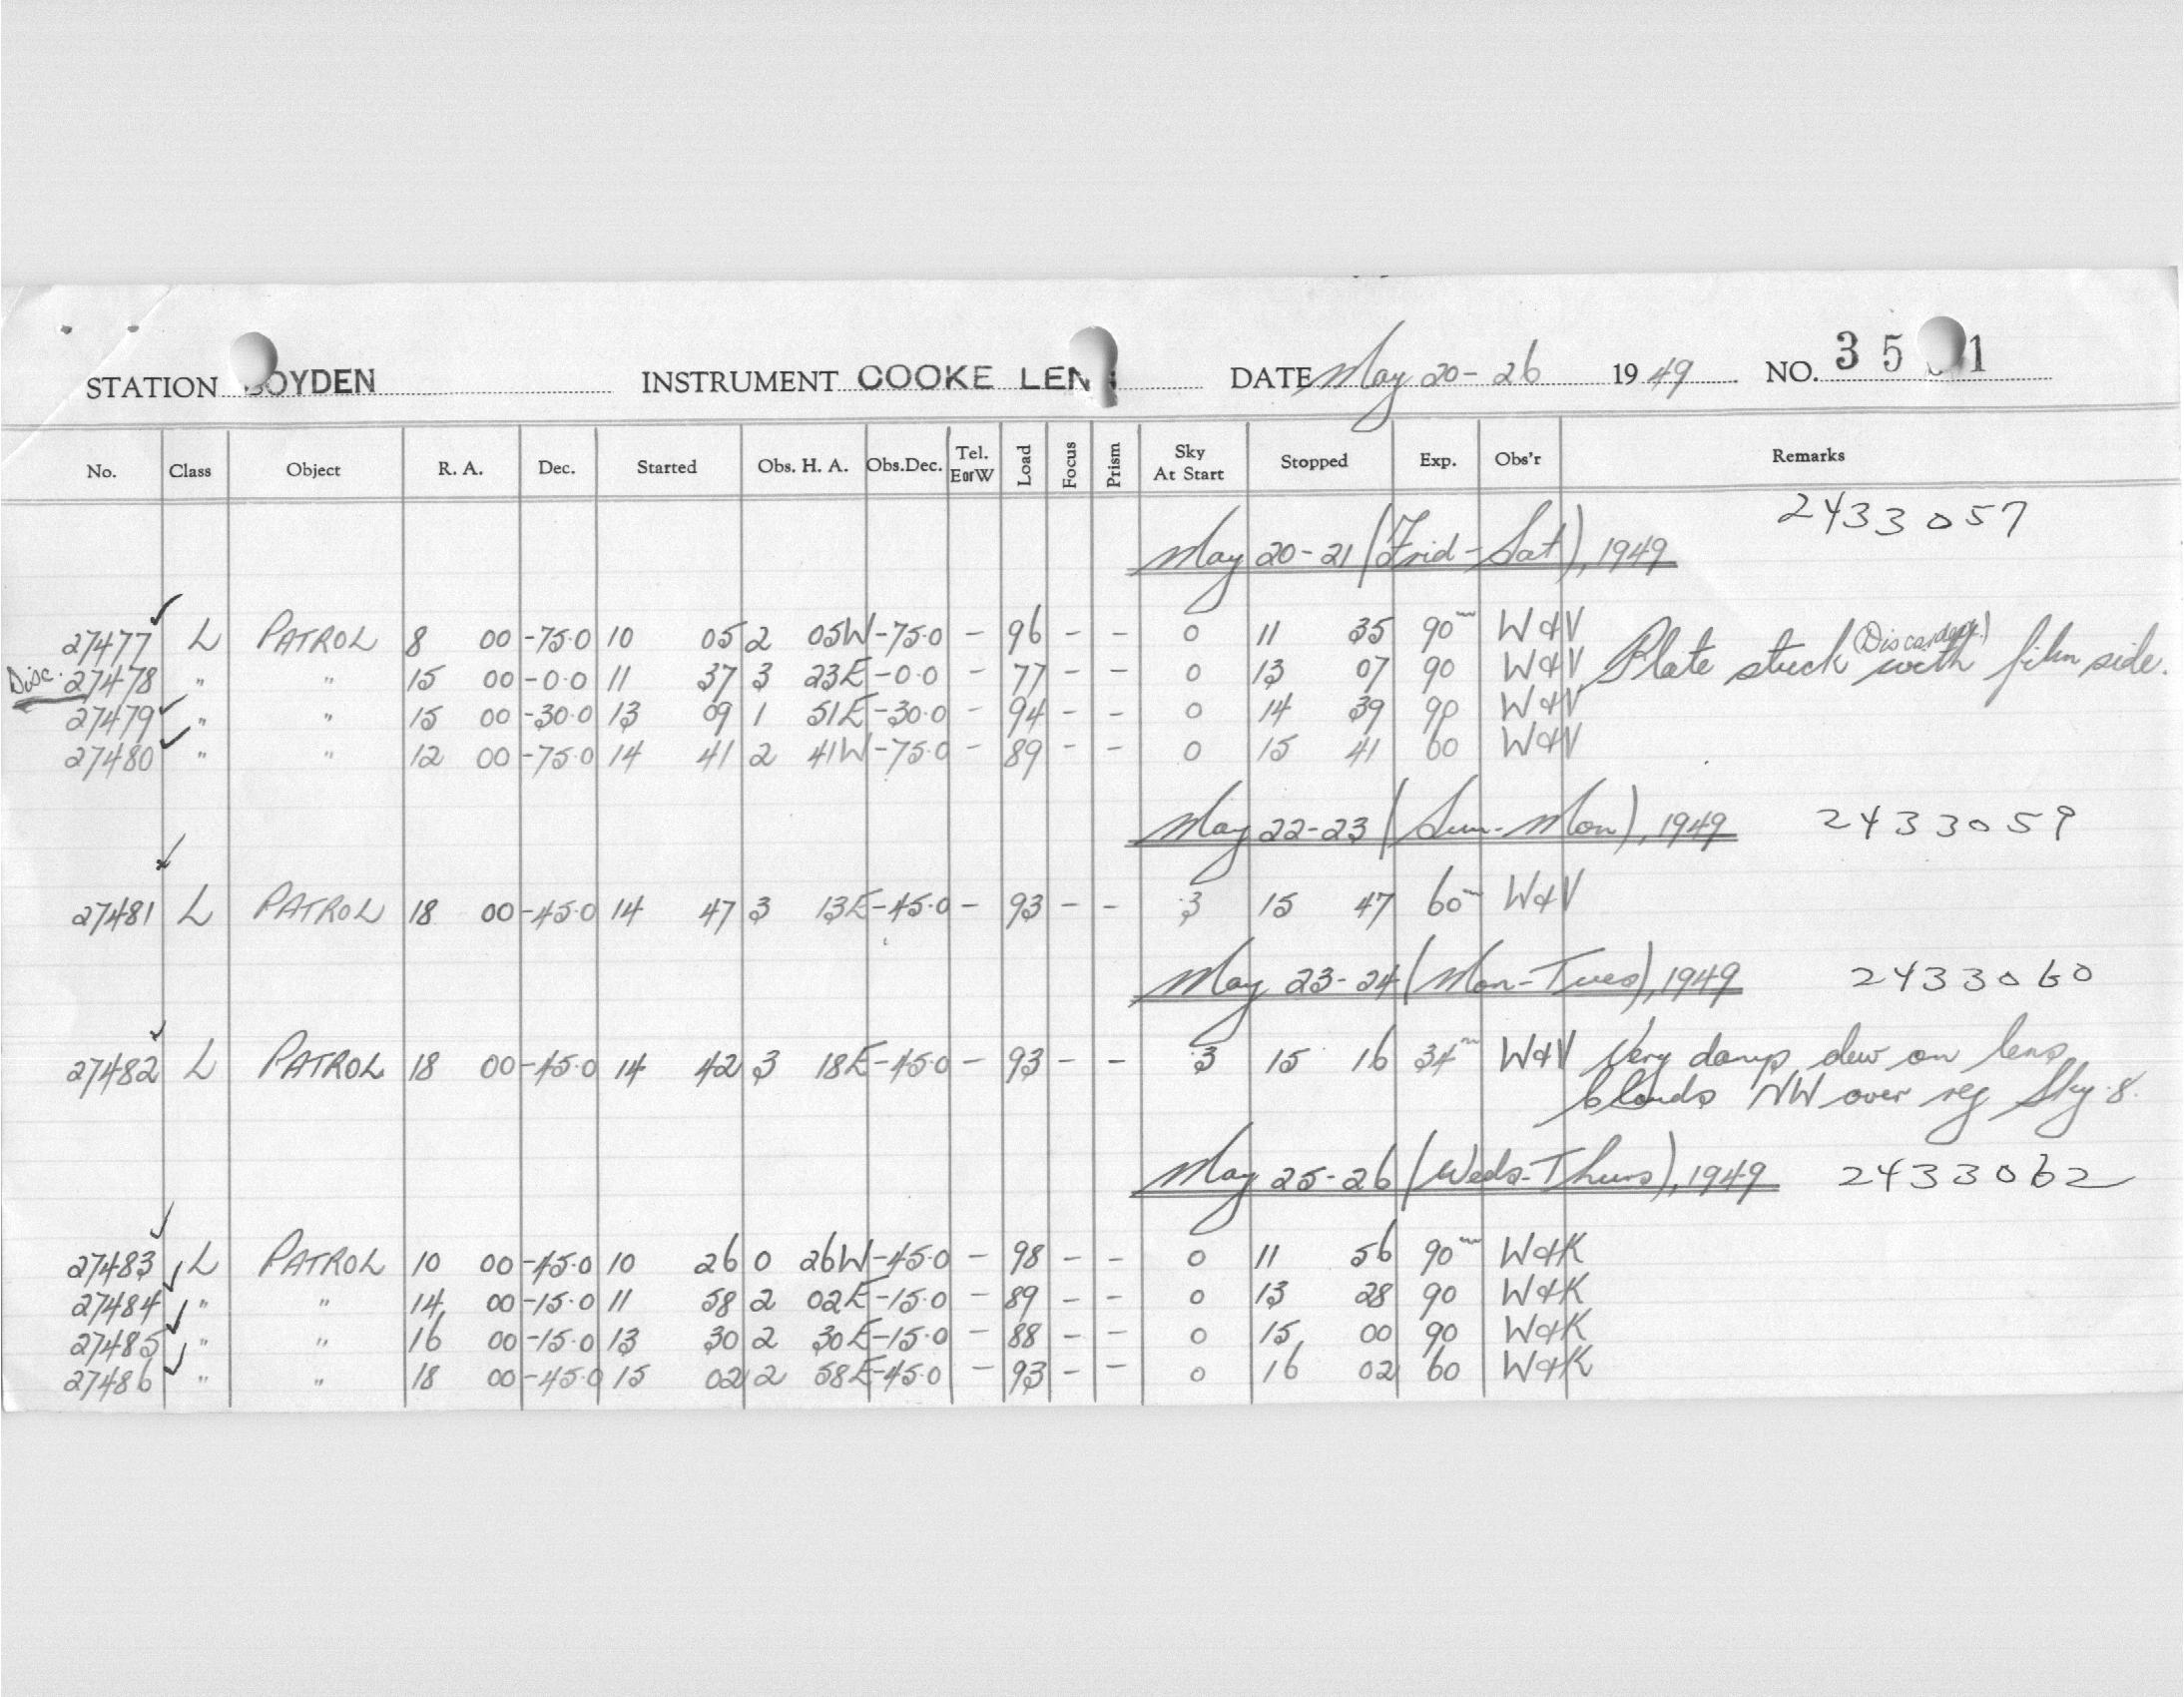 STATION BOYDEN INSTRUMENT COOKE LEN DATE May 20-26 1949 NO. 35 1
No. Class Object R. A. Dec. Started Obs. H. A. Obs.Dec. Tel. EorW Load Focus Prism Sky At Start Stopped Exp. Obs'r Remarks
2433057
May 20-21 (Frid-Sat), 1949
27477 L PATROL 8 00 -75.0 10 05 2 05W -75.0 - 96 - - 0 11 35 90m W&V
Disc. 27478 " " 15 00 -0.0 11 37 3 23E -0.0 - 77 - - 0 13 07 90 W&V Plate stuck with film side. (Discarded)
27479 " " 15 00 -30.0 13 09 1 51E -30.0 - 94 - - 0 14 39 90 W&V
27480 " " 12 00 -75.0 14 41 2 41W -75.0 - 89 - - 0 15 41 60 W&V
May 22-23 (Sun-Mon), 1949 2433059
27481 L PATROL 18 00 -45.0 14 47 3 13E -45.0 - 93 - - 3 15 47 60m W&V
May 23-24 (Mon-Tues), 1949 2433060
27482 L PATROL 18 00 -45.0 14 42 3 18E -45.0 - 93 - - 3 15 16 34m W&V Very damp dew on lens
Clouds NW over reg Sky 8.
May 25-26 (Weds-Thurs), 1949 2433062
27483 L PATROL 10 00 -45.0 10 26 0 26W -45.0 - 98 - - 0 11 56 90m W&K
27484 " " 14 00 -15.0 11 58 2 02E -15.0 - 89 - - 0 13 28 90 W&K
27485 " " 16 00 -15.0 13 30 2 30E -15.0 - 88 - - 0 15 00 90 W&K
27486 " " 18 00 -45.0 15 02 2 58E -45.0 - 93 - - 0 16 02 60 W&K